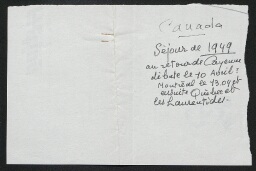 Canada
Séjour de 1949
au retour de Cayenne
débute le 10 Avril :
Montréal le 13.
ensuite Québec et
les Laurentides.